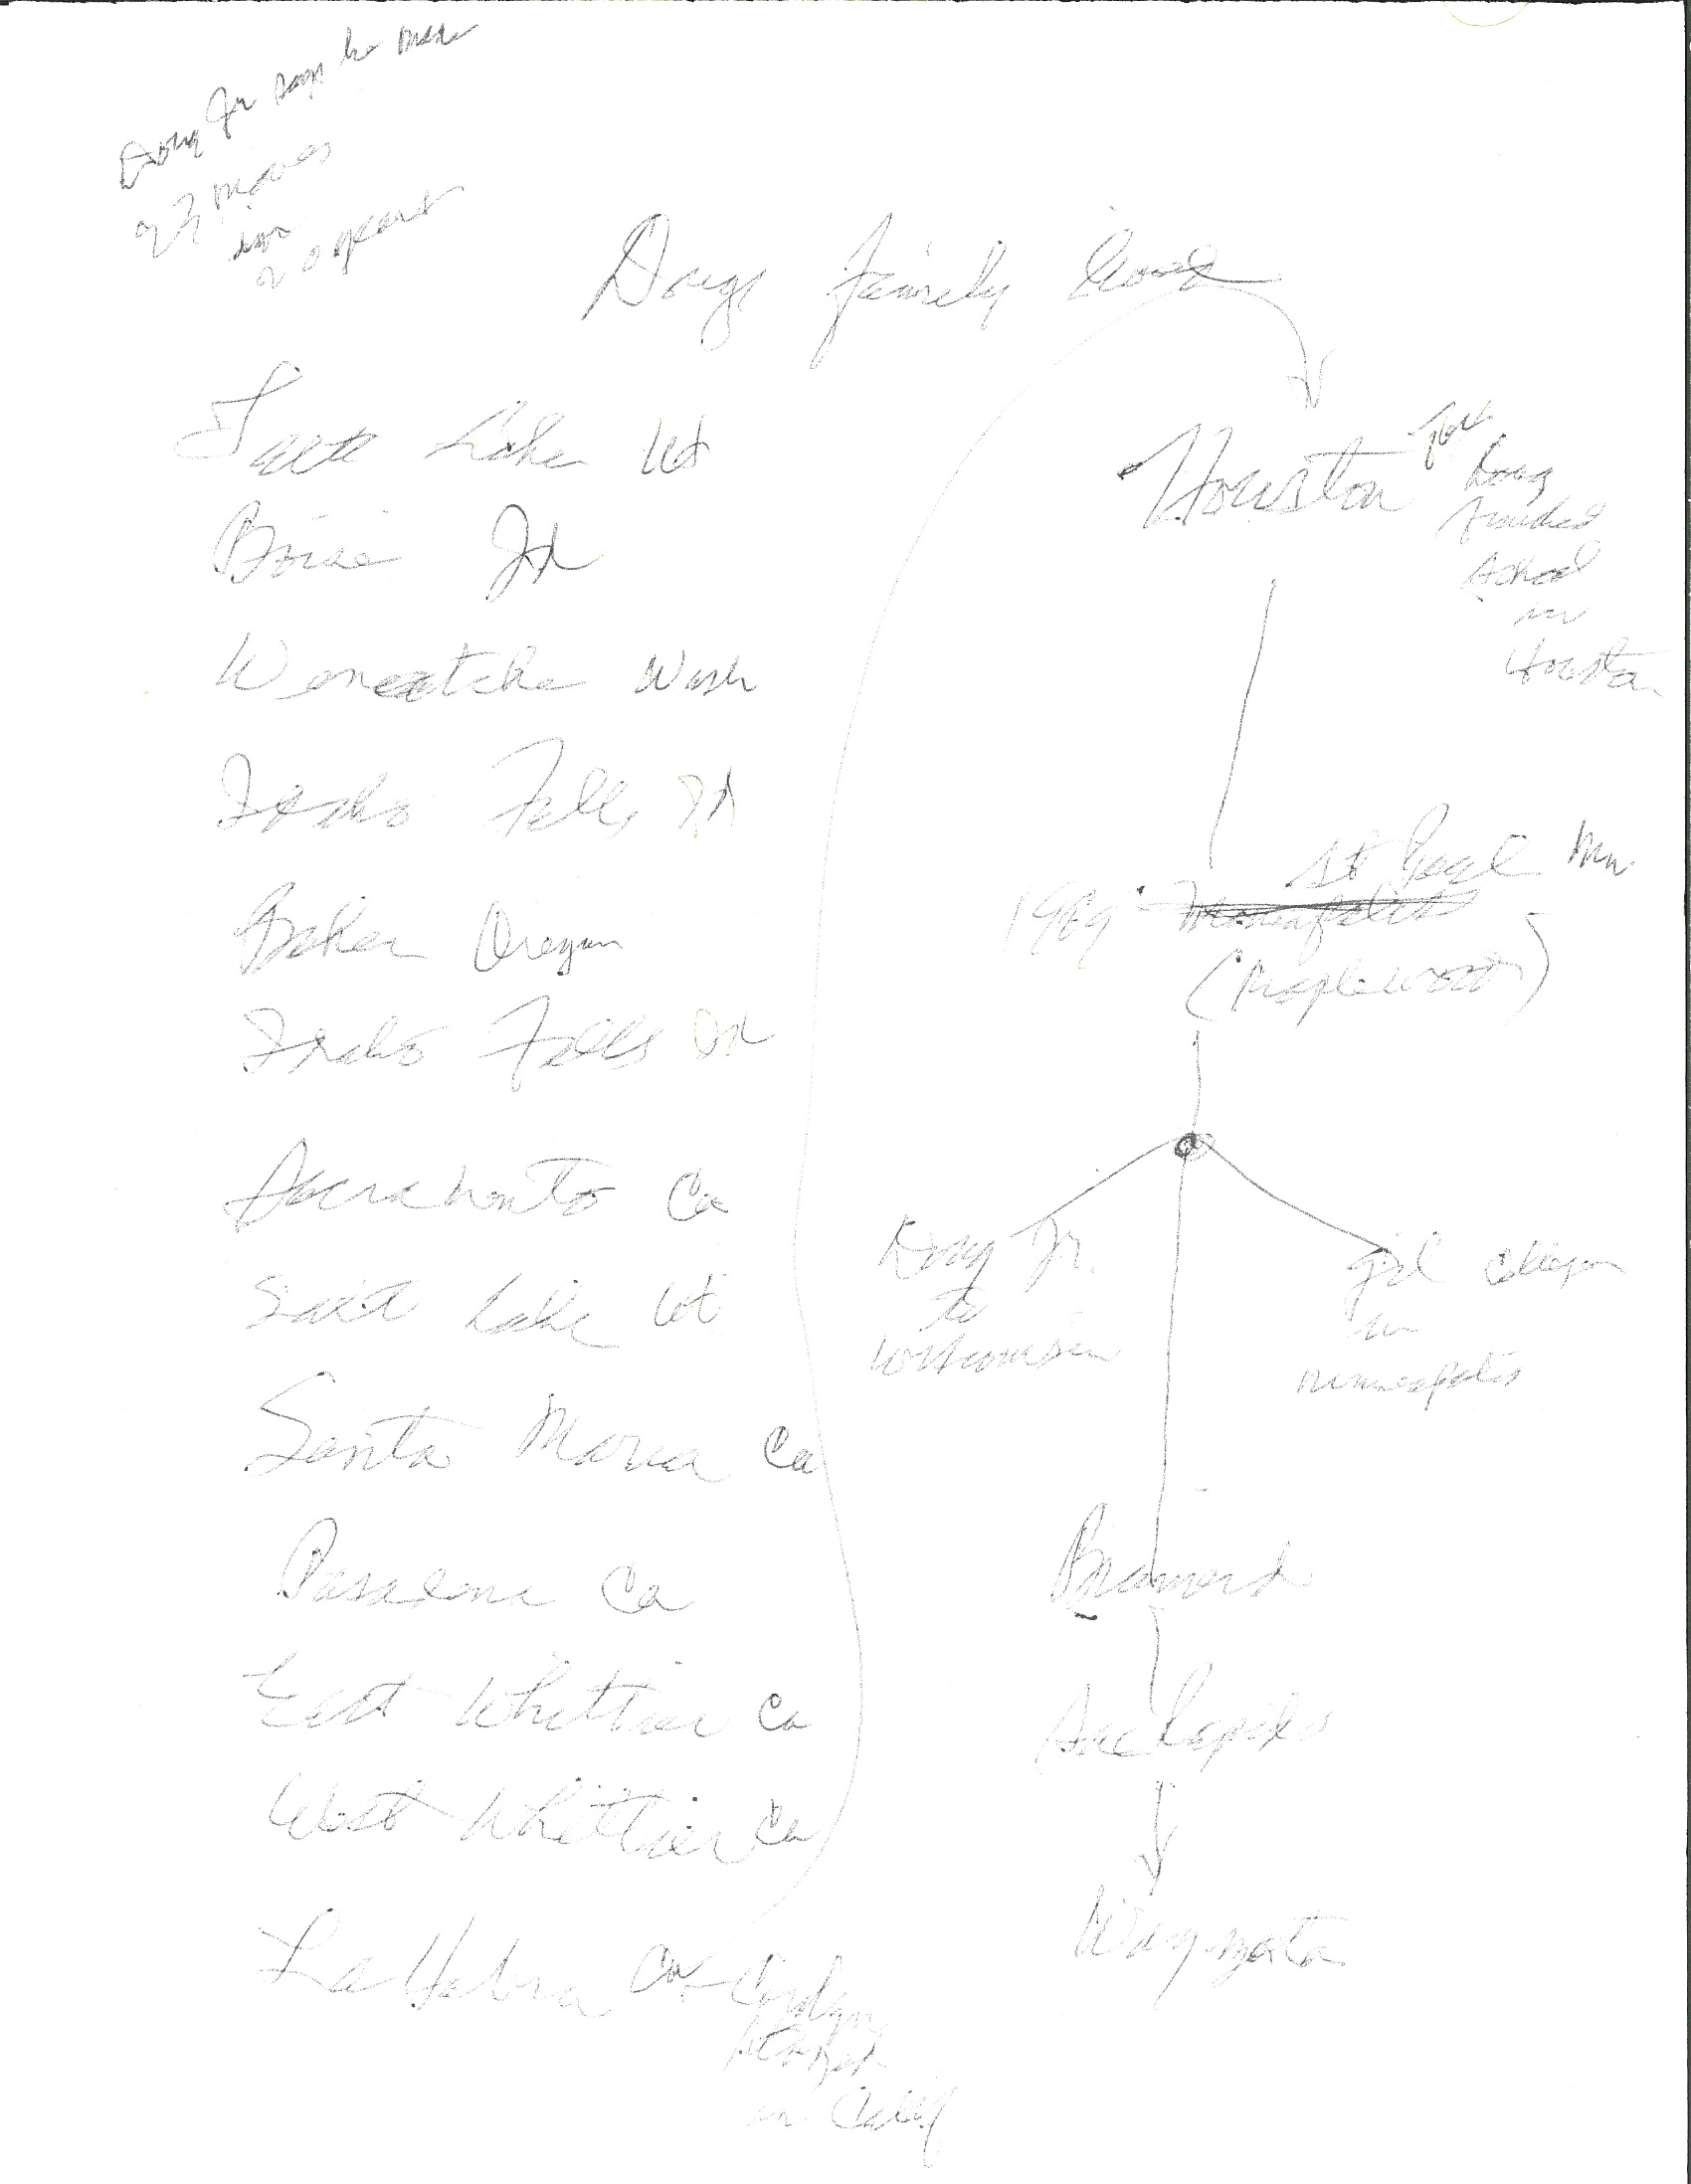 Doug Jr says he made
27 moves
in
20 years
Dougs Family lived
Salt Lake Ut
Boise Id
Weneatche Wash
Idaho Falls Id
Baker Oregon
Idaho Falls Id
Sacramento Ca
Salt Lake Ut
Santa Maria Ca
Pasadena Ca
East Whittier Ca
West Whittier Ca
La Habra Ca - Carolyn
stayed
in Calif
Houston
Doug
finished
school
in
Houston
St Paul Mn
1969 Minneapolis
(Maplewood)
Doug Jr.
to
Wisconsin
girl college
in
Minneapolis
Brainerd
Sac Rapids
Wayzata